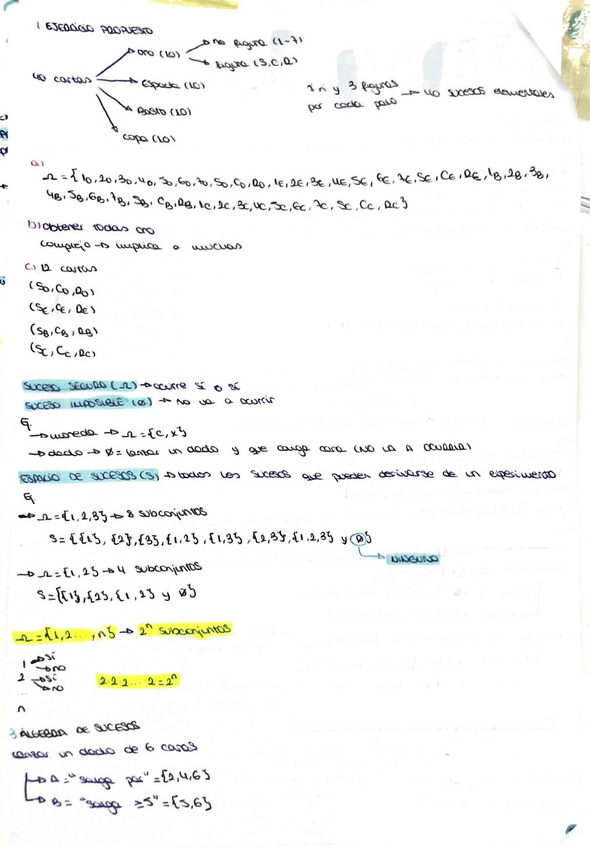 1 EJERCICIO PROPUESTO
oro (10) → no figura (1-7)
→ figura (S,C,R)
40 cartas
Espada (10)
Basto (10)
copa (10)
7 nº y 3 figuras
por cada palo → 40 sucesos elementales
a)
Ω = {1o, 2o, 3o, 4o, 5o, 6o, 7o, So, Co, Ro, 1E, 2E, 3E, 4E, 5E, 6E, 7E, SE, CE, RE, 1B, 2B, 3B,
4B, 5B, 6B, 7B, SB, CB, RB, 1c, 2c, 3c, 4c, 5c, 6c, 7c, Sc, Cc, Rc}
b) obtener todas oro
complejo → implica a muchas
c) 12 cartas
(So, Co, Ro)
(SE, CE, RE)
(SB, CB, RB)
(Sc, Cc, Rc)
SUCESO SEGURO (Ω) → ocurre sí o sí
SUCESO IMPOSIBLE (Ø) → no va a ocurrir
Ej
→ moneda → Ω = {c, x}
→ dado → Ø = lanzar un dado y que caiga cara (NO VA A OCURRIR)
ESPACIO DE SUCESOS (S) → todos los sucesos que pueden derivarse de un experimento
Ej
→ Ω = {1,2,3} → 8 subconjuntos
S = {{1}, {2}, {3}, {1,2}, {1,3}, {2,3}, {1,2,3} y Ø}
NINGUNO
→ Ω = {1,2} → 4 subconjuntos
S = {{1}, {2}, {1,2} y Ø}
Ω = {1,2..., n} → 2ⁿ subconjuntos
1 → sí
→ no
2 → sí
→ no
2·2·2·...·2 = 2ⁿ
...
n
3 ÁLGEBRA DE SUCESOS
Lanzar un dado de 6 caras
→ A = "salga par" = {2,4,6}
→ B = "salga ≥5" = {5,6}